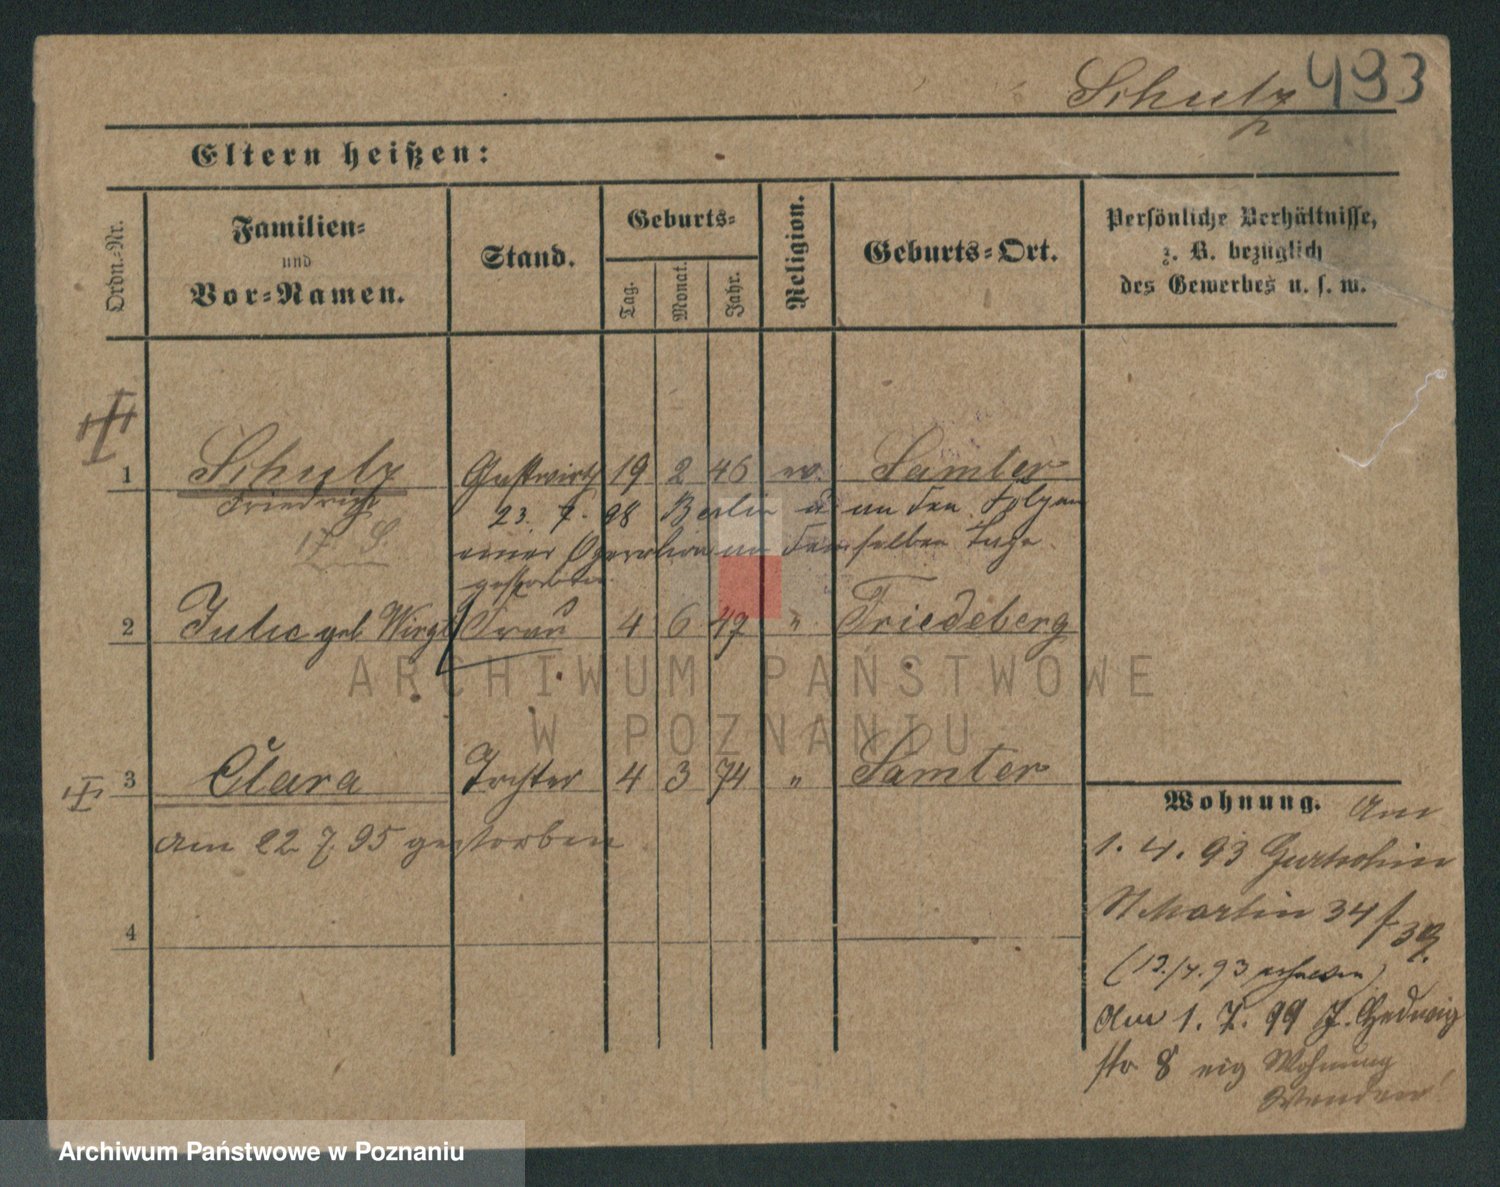 Schulz 493
Eltern heißen:
Ordn.-Nr.
Familien-
und
Vor-Namen.
Stand.
Geburts-
Tag.
Monat.
Jahr.
Religion.
Geburts-Ort.
Persönliche Verhältnisse,
z. B. bezüglich
des Gewerbes u. s. w.
1 Schulz Gastwirth 19 2 46 ev. Samter
Friedrich 23. 7. 98 Berlin u an den Folgen
einer Operation an demselben Tage
gestorben
2 Julie geb. Frau 4 6 47 " Friedeberg
3 Clara Tochter 4 3 74 " Samter
am 22. 7. 95 gestorben
4
Wohnung. Am
1. 4. 93
St Martin 34
(12./4. 93
Am 1. 7. 99 Hedwig
str 8 eig Wohnung
Wenden!
ARCHIWUM PAŃSTWOWE
W POZNANIU
Archiwum Państwowe w Poznaniu